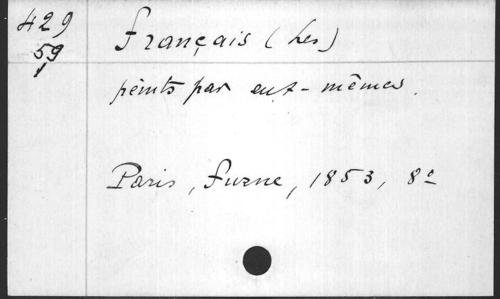 429
59
Français (Les)
peints par eux-mêmes.
Paris, Furne, 1853, 8º